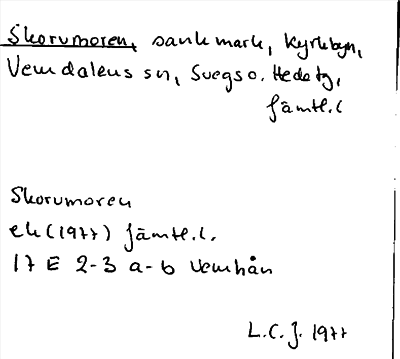 Skorumoren, sankmark, Kyrkbyn,
Vemdalens sn, Svegs o. Hede tg,
Jämtl. l
Skorumoren
ek (1977) Jämtl. l.
17 E 2-3 a-b Vemhån
L.C.J. 1977